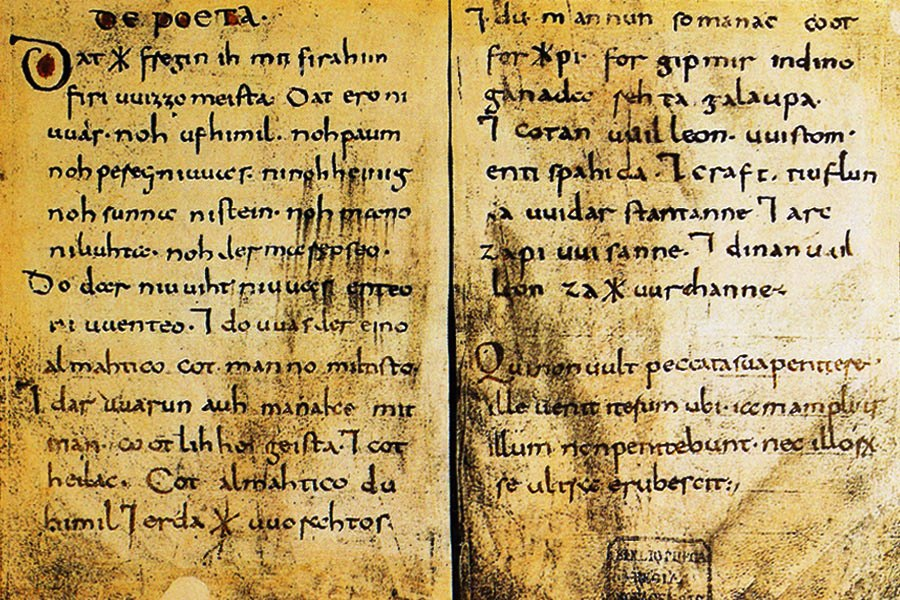 De poeta.
Dat ᚷ fregin ih mit firahim
firi uuizzo meista. Dat ero ni
uuas. noh ufhimil. noh paum
noh pereg ni uuas. ninohheinig
noh sunna nistein. noh mano
niliuhta. noh der mareo seo.
Do dar niuuiht niuuas enteo
ni uuenteo. ⁊ do uuas der eino
almahtico cot manno miltisto.
⁊ dar uuarun auh manake mit
inan. cootlihhe geista. ⁊ cot
heilac. Cot almahtico du
himil ⁊ erda ᚷ uuorahtos.
⁊ du mannun so manac coot
for ᚷ pi. for gipmir indino
ganada rehta galaupa.
⁊ cotan uuilleon. uuistom.
enti spahida. ⁊ craft. tiuflun
za uuidar stantanne ⁊ arc
zapi uuisanne. ⁊ dinan uuil
leon za ᚷ uurchanne.
Qui non vult peccata sua penitere
ille venit iterum ubi. iam amplius
illum non penitebunt. nec illorꝝ
se ultra erubescit.
BIBLIOTHECA
REGIA